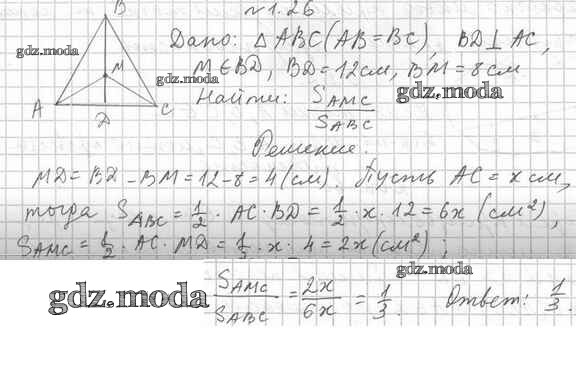 №1.26
B
gdz.moda
Дано: △ ABC (AB = BC), BD ⊥ AC,
M
M ∈ BD, BD = 12 см, BM = 8 см
gdz.moda
gdz.moda
A D C
Найти: S_AMC / S_ABC
Решение.
MD = BD - BM = 12 - 8 = 4 (см). Пусть AC = x см,
тогда S_ABC = 1/2 · AC · BD = 1/2 · x · 12 = 6x (см²),
S_AMC = 1/2 · AC · MD = 1/2 · x · 4 = 2x (см²);
gdz.moda
gdz.moda
S_AMC / S_ABC = 2x / 6x = 1/3. Ответ: 1/3.